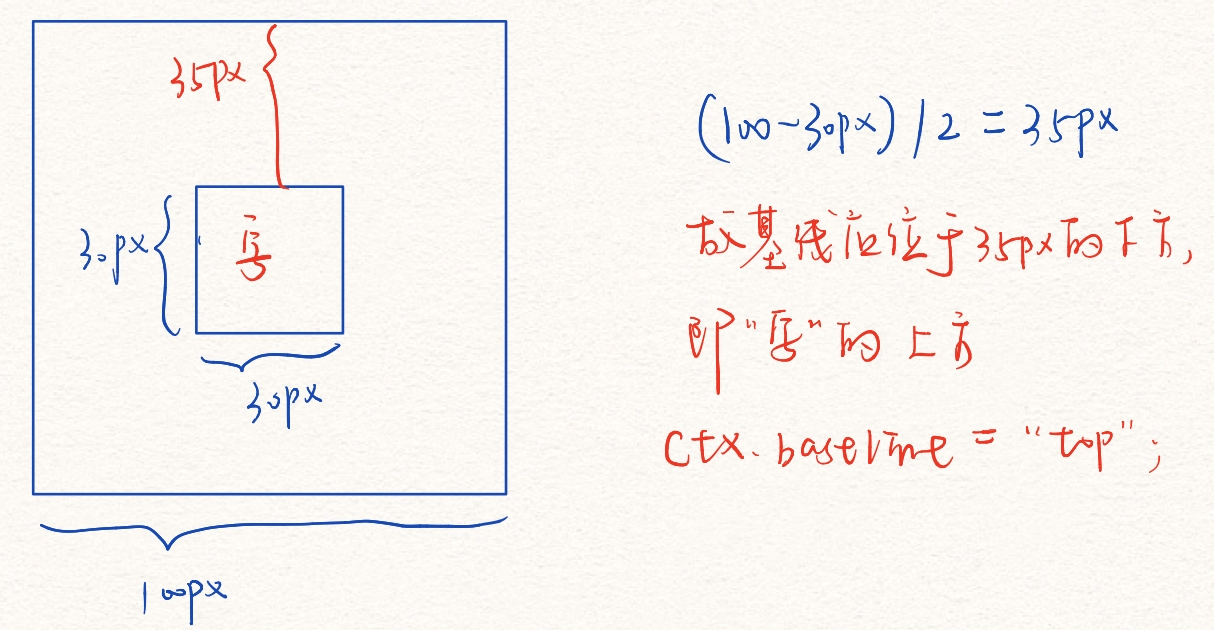 35px
30px
号
30px
100px
(100-30px)/2=35px
故基线应位于35px的下方,
即"号"的上方
ctx.baseline = "top";